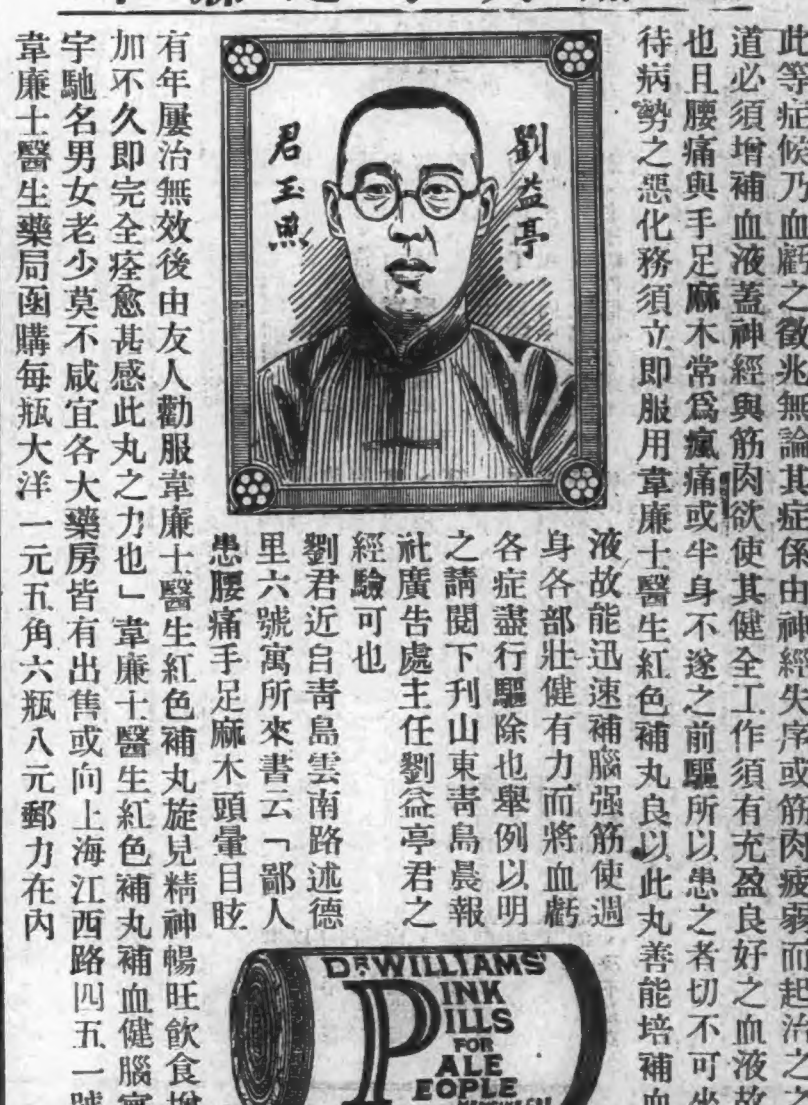 此等症候乃血虧之徵兆無論其症係由神經失序或筋肉疲弱而起治之之
道必須增補血液蓋神經與筋肉欲使其健全工作須有充盈良好之血液故
也且腰痛與手足麻木常爲瘋痛或半身不遂之前驅所以患之者切不可坐
待病勢之惡化務須立即服用韋廉士醫生紅色補丸良以此丸善能培補血
液故能迅速補腦强筋使週
身各部壯健有力而將血虧
各症盡行驅除也舉例以明
之請閱下刋山東靑島晨報
社廣告處主任劉益亭君之
經驗可也
劉君近自靑島雲南路述德
里六號寓所來書云「鄙人
患腰痛手足麻木頭暈目眩
有年屢治無效後由友人勸服韋廉士醫生紅色補丸旋見精神暢旺飲食增
加不久即完全痊愈甚感此丸之力也」韋廉士醫生紅色補丸補血健腦
宇馳名男女老少莫不咸宜各大藥房皆有出售或向上海江西路四五一號
韋廉士醫生藥局函購每瓶大洋一元五角六瓶八元郵力在內
劉益亭
君玉照
DR WILLIAMS'
PINK
PILLS
FOR
PALE
PEOPLE